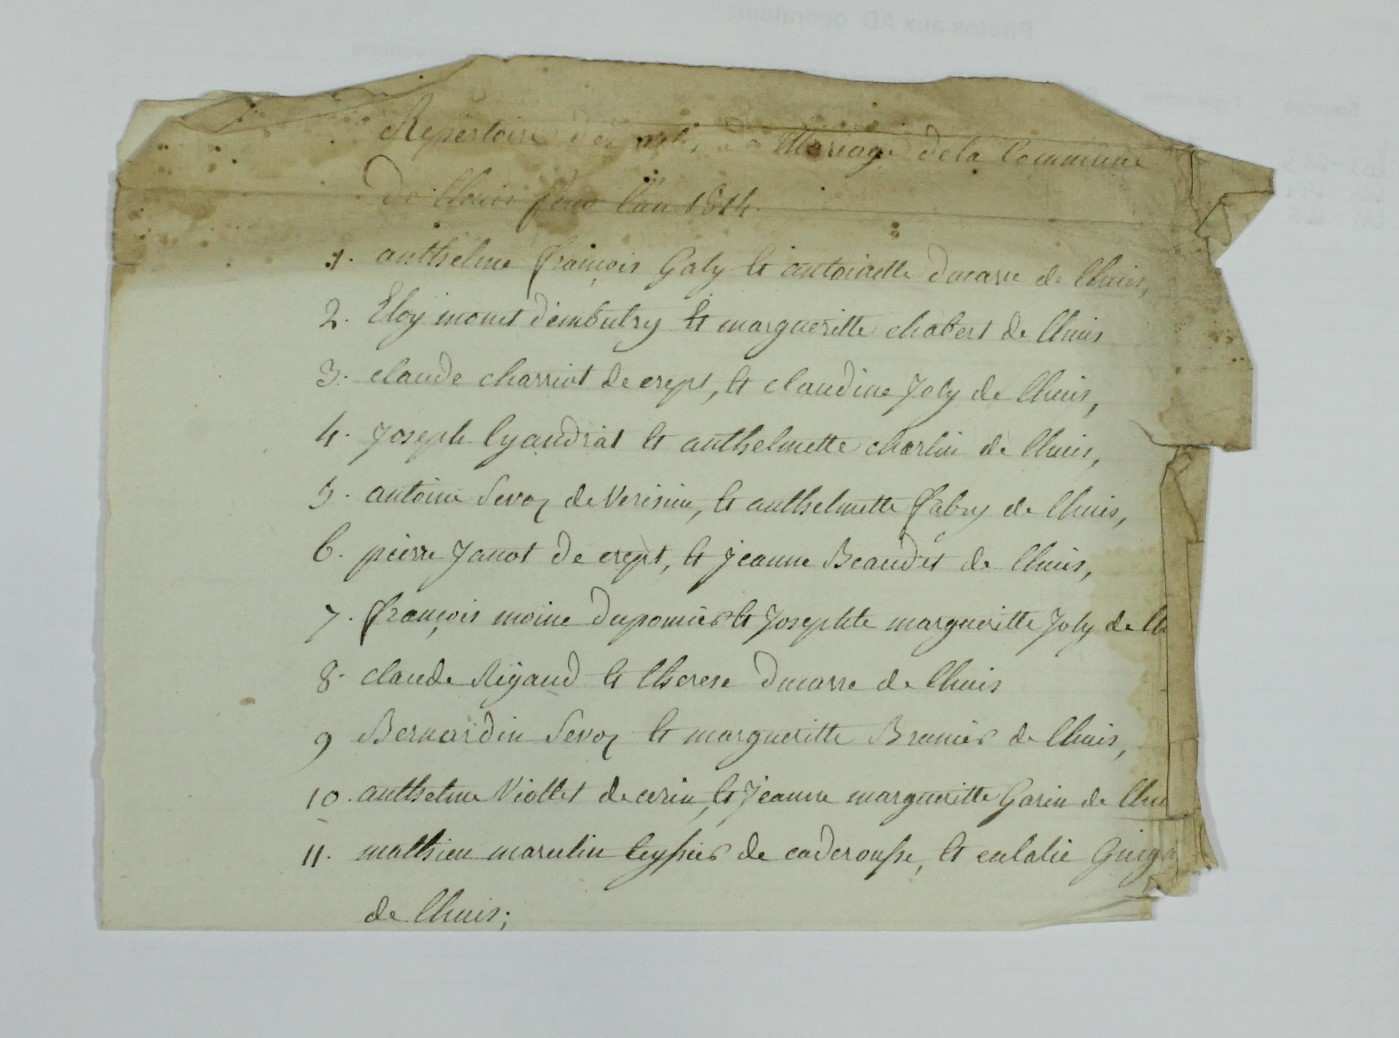 Répertoire des actes de Mariage de la Commune
De lhuis pour l'an 1814.
1. anthelme françois Galy et antoinette ducarre de lhuis,
2. Eloy monet d'embutry et margueritte chabert de lhuis
3. claude charriot de crept, et claudine Joly de lhuis,
4. Joseph lyaudrat et anthelmette charlin de lhuis,
5. antoine Sevoz de Verisieu, et anthelmette fabry de lhuis,
6. pierre Janot de crept, et jeanne Beaudet de lhuis,
7. françois moine et Josephte margueritte Joly de lh
8. claude Rigaud et therese ducarre de lhuis
9 Bernardin Sevoz et margueritte Brunier de lhuis,
10. anthelme Viollet de cerin, et Jeanne margueritte Garin de lhu
11. mathieu marcelin teyssier de caderousse, et eulalie
de lhuis;